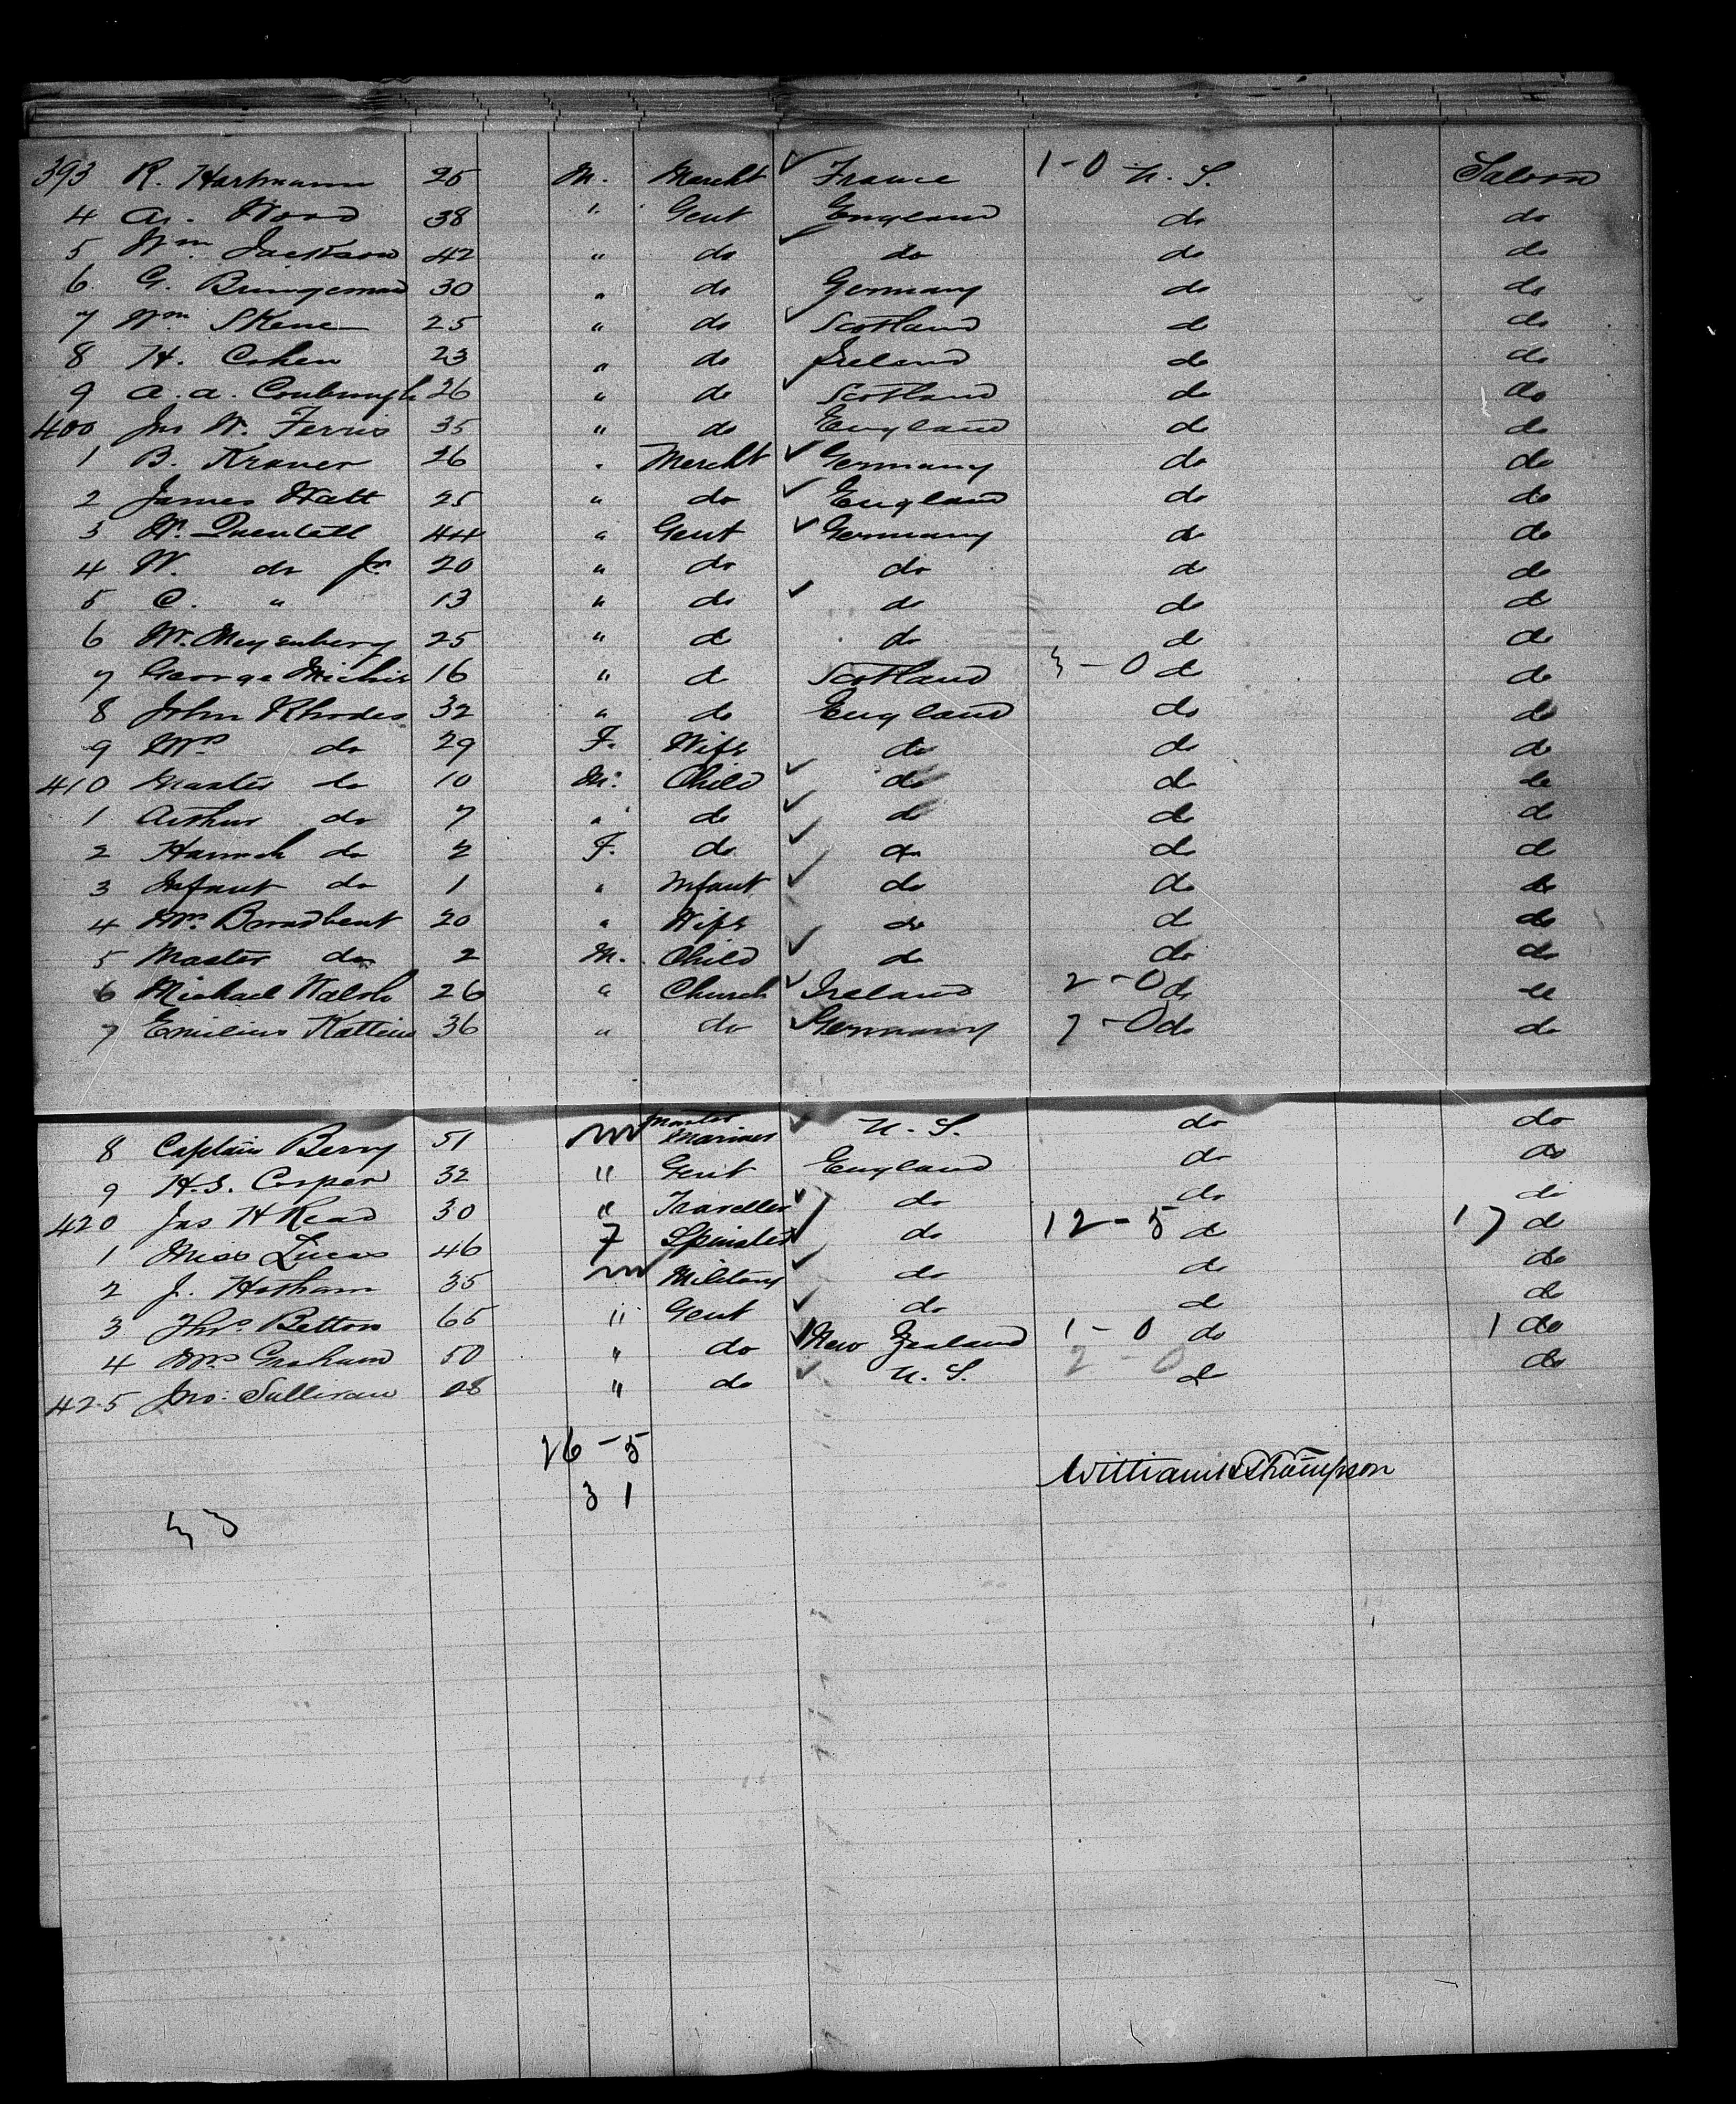 393 R. Hartmann 25 M. Mercht ✓ France 1-0 U. S. Saloon
4 A. Wood 38 " Gent England do do
5 Wm Jackson 42 " do ✓ do do do
6 G. Bringeman 30 " do Germany do do
7 Wm Skene 25 " do ✓ Scotland do do
8 H. Cohen 23 " do ✓ Ireland do do
9 A. A. Coubrough 26 " do ✓ Scotland do do
400 Jno W. Ferris 35 " do England do do
1 B. Kraner 26 " Mercht ✓ Germany do do
2 James Watt 25 " do ✓ England do do
3 W. Quentell 44 " Gent ✓ Germany do do
4 W. do Jr. 20 " do do do do
5 C. " 13 " do ✓ do do do
6 W. Meyenberg 25 " do do do do
7 George Michie 16 " do Scotland 3-0 do do
8 John Rhodes 32 " do England do do
9 Mrs do 29 F. Wife do do do
410 Master do 10 M. Child ✓ do do do
1 Arthur do 7 " do ✓ do do do
2 Hannah do 2 F. do ✓ do do do
3 Infant do 1 " Infant ✓ do do do
4 Mrs Broadbent 20 " Wife do do do
5 Master do 2 M. Child ✓ do do do
6 Michael Walsh 26 " Church ✓ Ireland 2-0 do do
7 Emilius Kattein 36 " do ✓ Germany 7-0 do do
8 Captain Berry 51 M Master Mariner ✓ U. S. do do
9 H. S. Casper 32 " Gent England do do
420 Jas H Read 30 " Traveller ✓ do do do
1 Miss Lucas 46 F Spinster ✓ do 12-5 do 17 do
2 J. Hotham 35 M Military ✓ do do do
3 Thos Betton 65 " Gent ✓ do do do
4 Mrs Graham 50 " do ✓ New Zealand 1-0 do 1 do
425 Jno. Sullivan 28 " do ✓ U. S. 2-0 do do
26-5
31
33
William Thompson